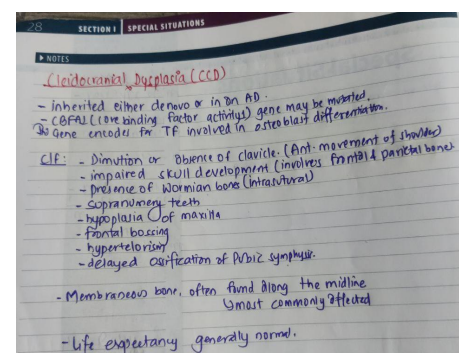 28 SECTION I SPECIAL SITUATIONS
▶ NOTES
Cleidocranial Dysplasia (CCD)
- inherited either denovo or in an AD.
- CBFA1 (core binding factor activity) gene may be mutated.
gene encodes for TF involved in osteoblast differentiation.
C/F: - Dimution or absence of clavicle. (Ant. movement of shoulder)
- impaired skull development (involves frontal & parietal bones
- presence of Wormian bones (intrasutural)
- supranumery teeth
- hypoplasia of maxilla
- frontal bossing
- hypertelorism
- delayed ossification of Pubic symphysis.
- Membraneous bone, often found along the midline
↳ most commonly affected
- Life expectancy generally normal.